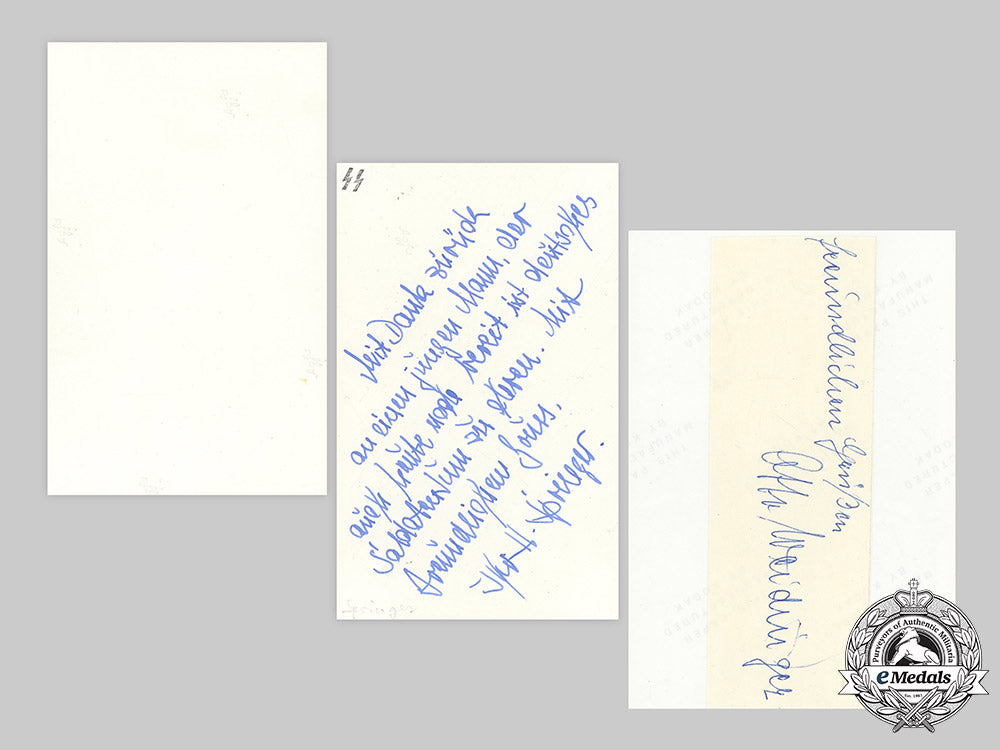 Mit Dank zurück
an einen jungen Mann, der
auch heute noch bereit ist deutsches
Soldatentum zu ehren. Mit
freundlichen Gruss,
Ihr H. Springer.
Springer
freundlichen Grüßen
Otto Weidinger
THIS PAPER
MANUFACTURED
BY KODAK
Purveyors of Authentic Militaria
eMedals